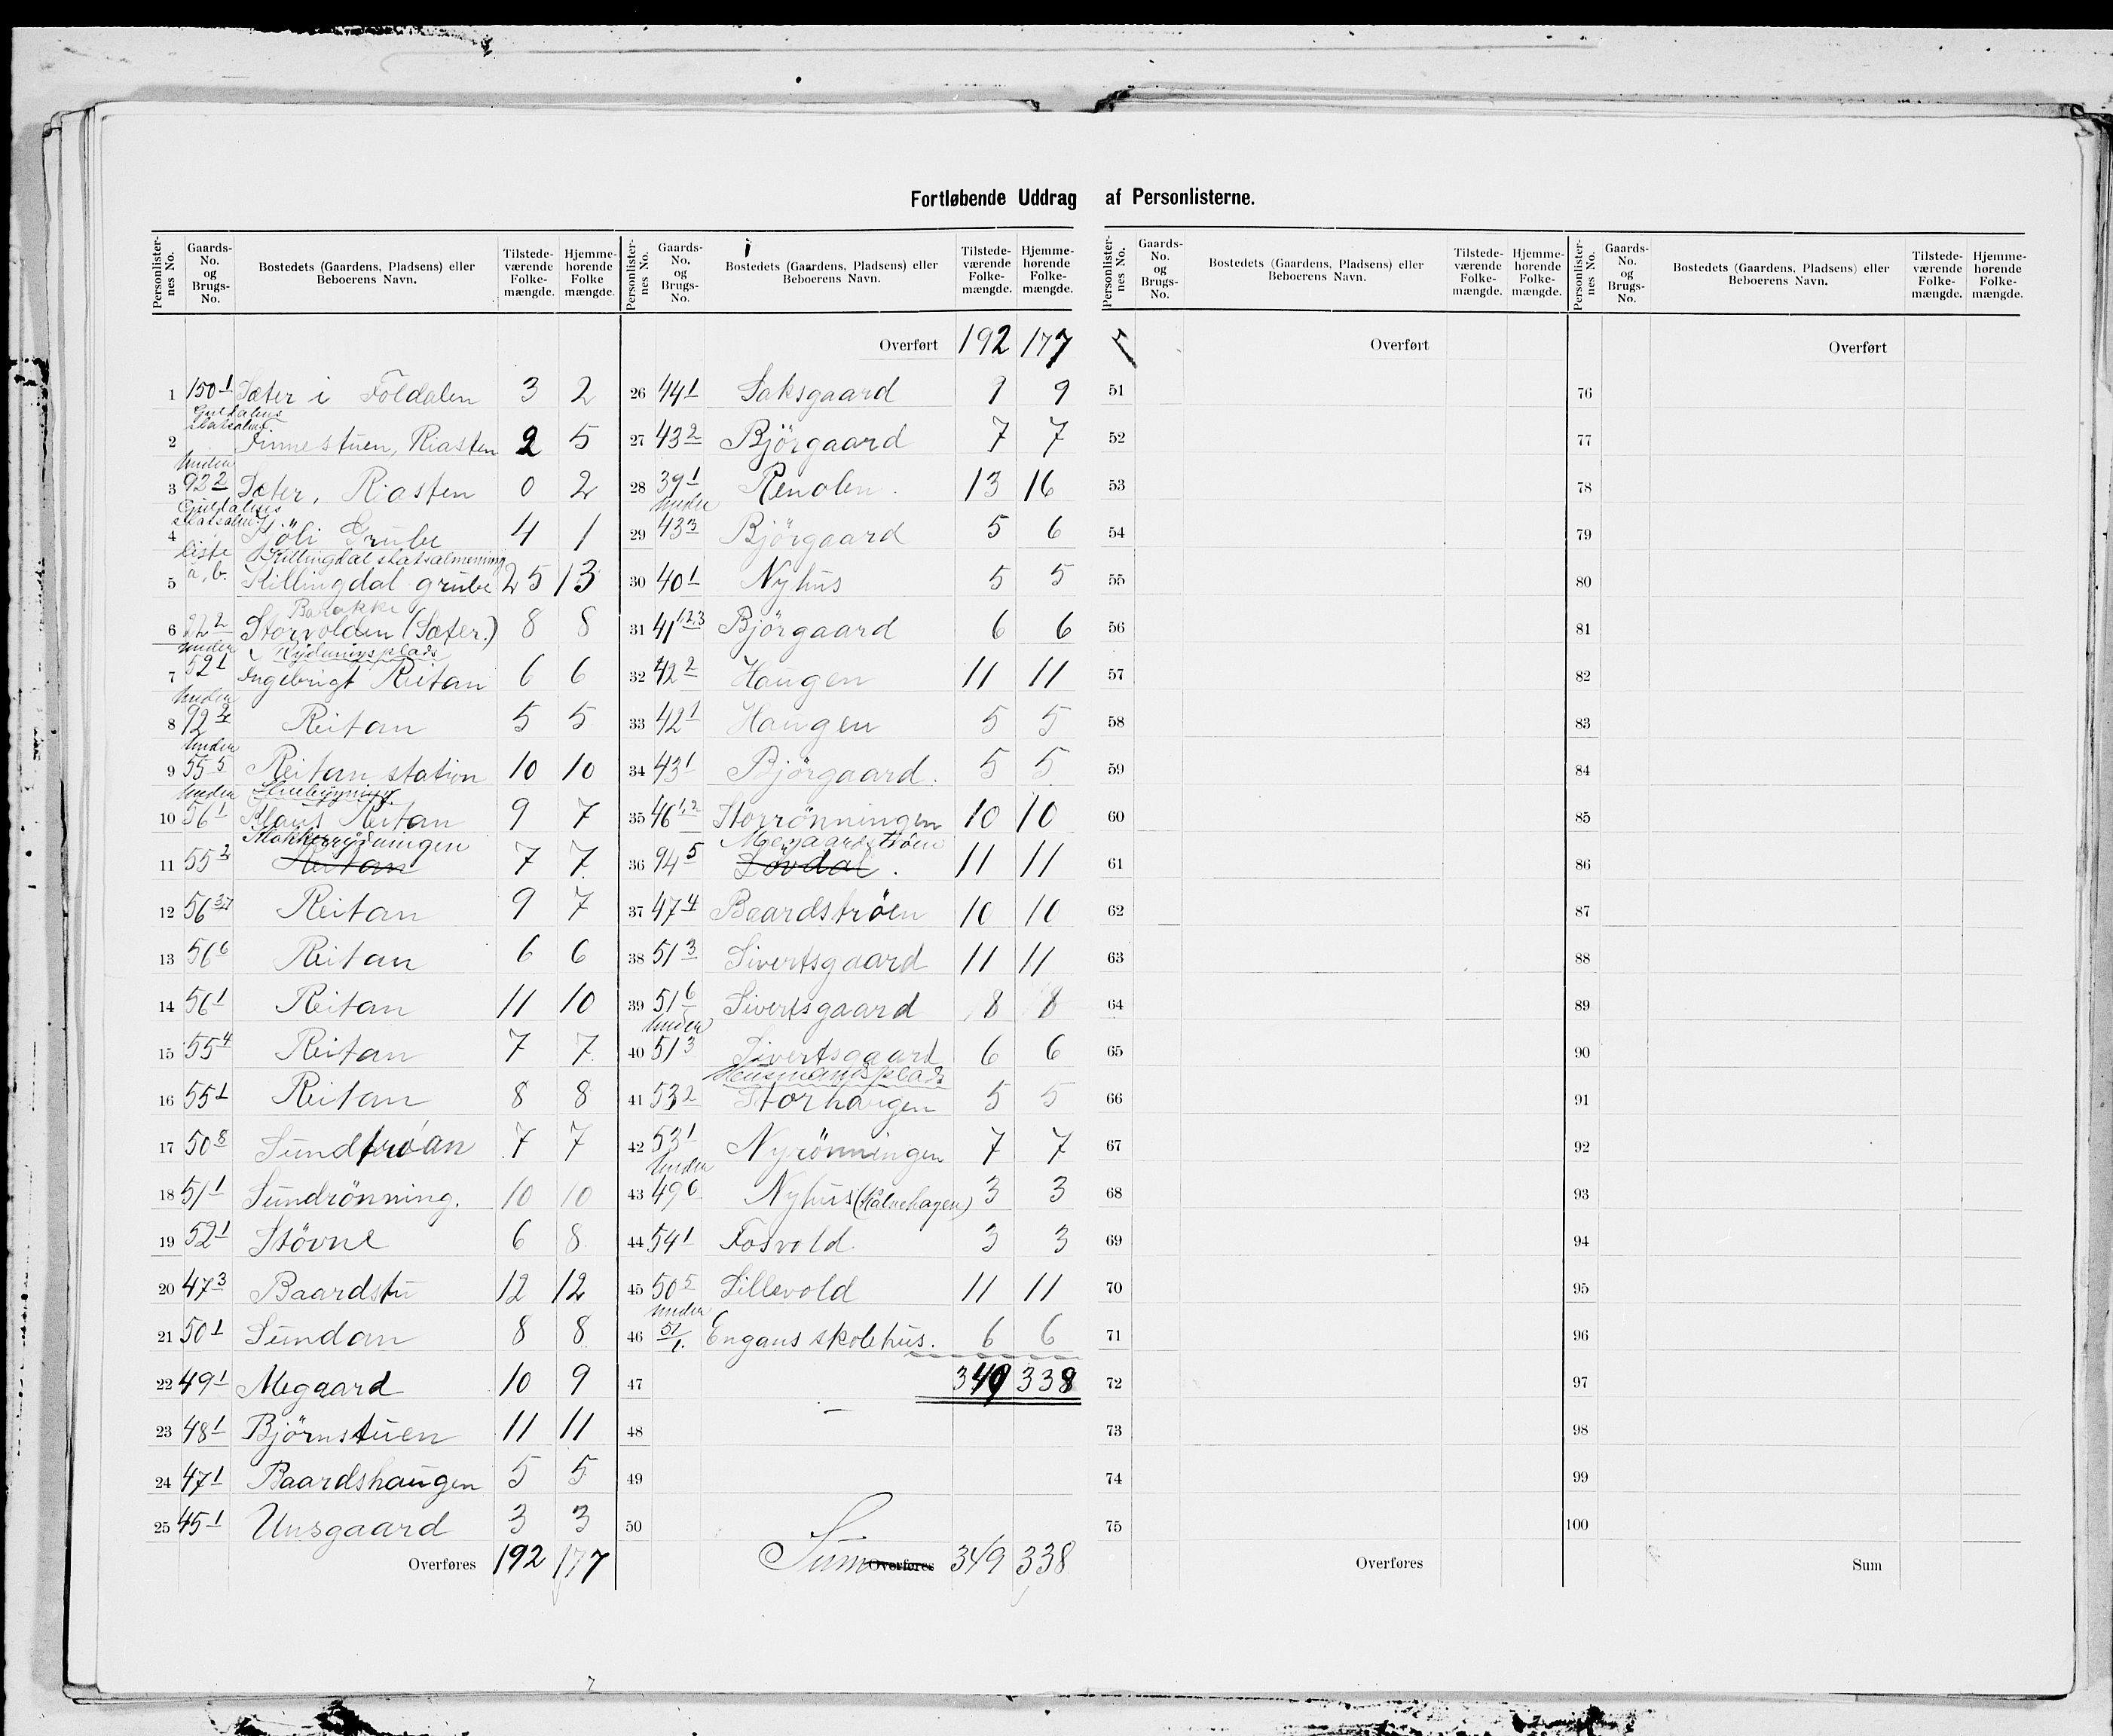 Fortløbende Uddrag af Personlisterne.
Personlisternes No. | Gaards-No. og Brugs-No. | Bostedets (Gaardens, Pladsens) eller Beboerens Navn. | Tilstedeværende Folkemængde. | Hjemmehørende Folkemængde.
1 150 1 Sæter i Foldalen 3 2
Guldalens statsalm.
2 Finnestuen, Riasten 2 5
Under
3 92 2 Sæter, Riasten 0 2
Guldalens statsalm.
4 Kjöli Grube 4 1
liste Killingdal statsalmening
5 a, b. Killingdal grube 25 13
Barakke
6 92 2 Storvolden (Sæter.) 8 8
Under Rydningsplads
7 52 1 Ingebrigt Reitan 6 6
Under
8 92 2 Reitan 5 5
Under
9 55 5 Reitan station 10 10
Under
10 56 1 Klaus Reitan 9 7
Stokkerrydningen
11 55 2 Reitan 7 7
12 56 3,7 Reitan 9 7
13 56 6 Reitan 6 6
14 56 1 Reitan 11 10
15 55 4 Reitan 7 7
16 55 1 Reitan 8 8
17 50 8 Sundtröan 7 7
18 51 1 Sundrönning. 10 10
19 52 1 Stövne 6 8
20 47 3 Baardstu 12 12
21 50 1 Sundan 8 8
22 49 1 Megaard 10 9
23 48 1 Björnstuen 11 11
24 47 1 Baardshaugen 5 5
25 45 1 Unsgaard 3 3
Overføres 192 177
Personlisternes No. | Gaards-No. og Brugs-No. | Bostedets (Gaardens, Pladsens) eller Beboerens Navn. | Tilstedeværende Folkemængde. | Hjemmehørende Folkemængde.
Overført 192 177
26 44 1 Saksgaard 9 9
27 43 2 Björgaard 7 7
28 39 1 Renolen. 13 16
Under
29 43 3 Björgaard 5 6
30 40 1 Nyhus 5 5
31 41 1,2,3 Björgaard 6 6
32 42 2 Haugen 11 11
33 42 1 Haugen 5 5
34 43 1 Björgaard. 5 5
35 46 1,2 Storrönningen 10 10
Megaardströen
36 94 5 Lövdal. 11 11
37 47 4 Baardströen 10 10
38 51 3 Sivertsgaard 11 11
39 51 6 Sivertsgaard 8 8
Under
40 51 3 Sivertsgaard 6 6
Husmandsplads
41 53 2 Storhaugen 5 5
42 53 1 Nyrönningen 7 7
Under
43 49 6 Nyhus (Kålvehagen) 3 3
44 54 1 Fosvold. 3 3
45 50 5 Lillevold 11 11
Under
46 51/1. Engans skolehus. 6 6
47 349 338
48
49
50
Sum Overføres 349 338
Personlisternes No. | Gaards-No. og Brugs-No. | Bostedets (Gaardens, Pladsens) eller Beboerens Navn. | Tilstedeværende Folkemængde. | Hjemmehørende Folkemængde.
Overført
51
52
53
54
55
56
57
58
59
60
61
62
63
64
65
66
67
68
69
70
71
72
73
74
75
Overføres
Personlisternes No. | Gaards-No. og Brugs-No. | Bostedets (Gaardens, Pladsens) eller Beboerens Navn. | Tilstedeværende Folkemængde. | Hjemmehørende Folkemængde.
Overført
76
77
78
79
80
81
82
83
84
85
86
87
88
89
90
91
92
93
94
95
96
97
98
99
100
Sum